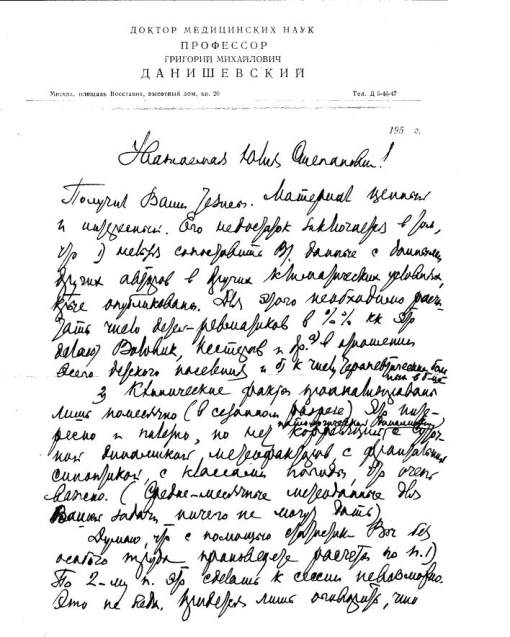 ДОКТОР МЕДИЦИНСКИХ НАУК
ПРОФЕССОР
ГРИГОРИЙ МИХАЙЛОВИЧ
ДАНИШЕВСКИЙ
Москва, площадь Восстания, высотный дом, кв. 20 Тел. Д 5-46-47
195 г.
Уважаемая Юлия Степановна!
Получил Ваши тезисы. Материал ценный
и интересный. Его недостаток заключается в том,
что 1) нельзя сопоставить В/ данные с данными
других авторов в других климатических условиях,
кые опубликованы. Для этого необходимо расчи-
тать число детей-ревматиков в %% как это
делают Воловик, Нестеров и др. в отношении
всего детского населения и к числу терапевтических
2) Клинические факты проанализированы
лишь помесячно (в сезонном разрезе) Это инте-
ресно и но нет
динамикой метеофакторов, с фронтальной
синоптикой, с классами погоды, что очень
важно. (Средне-месячные метеоданные для
Вашей задачи ничего не могут дать)
Думаю, что с помощью Вы без
особого труда произведете расчеты по п. 1)
По 2-му п. это сделать к сессии невозможно.
Это не беда. Придется лишь оговорить, что